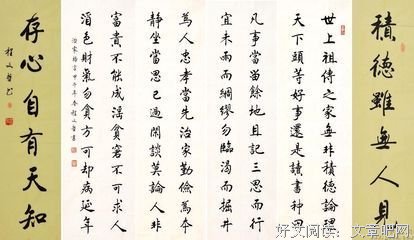 積德雖無人見
世上祖傳之家無非積德論理
天下頭等好事還是讀書種田
凡事當留餘地且記三思而行
宜未雨而綢繆勿臨渴而掘井
為人忠孝當先治家勤儉為本
靜坐當思己過閑談莫論人非
富貴不能成淫貧窘不可求人
酒色財氣勿貪方可却病延年
治家格言甲午年春程文哲書
存心自有天知
程文哲书
好文阅读：文章吧网